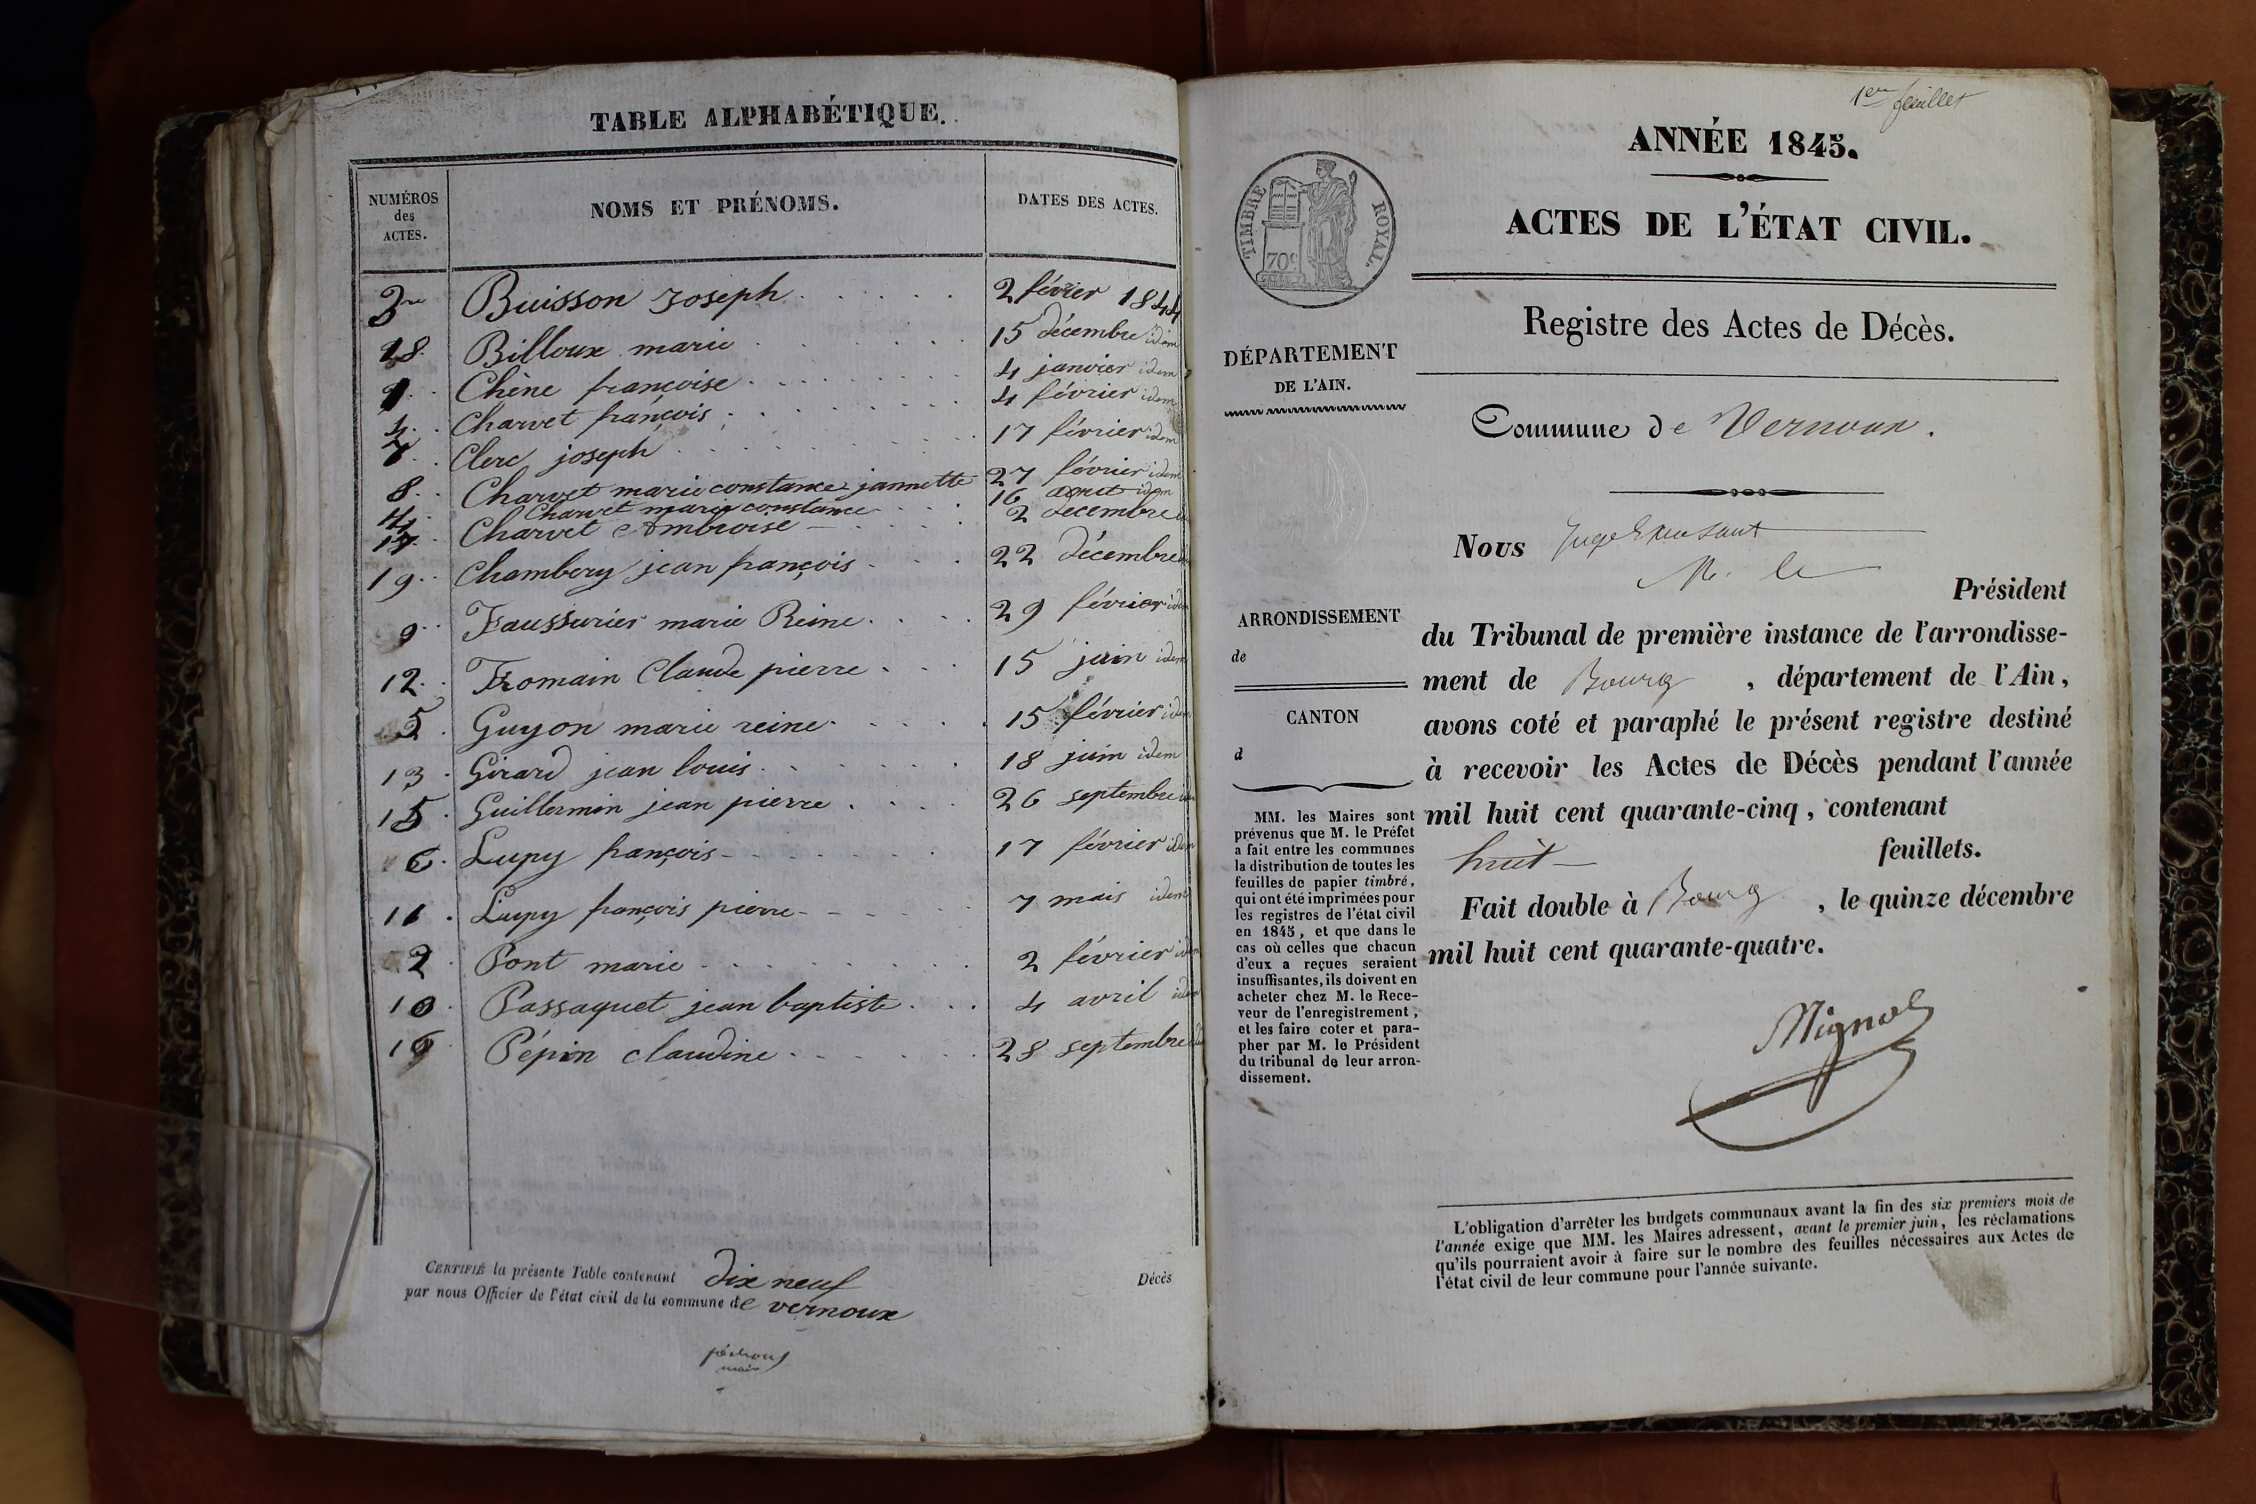 TABLE ALPHABÉTIQUE.
NUMÉROS
des
ACTES.
NOMS ET PRÉNOMS.
DATES DES ACTES.
3 Buisson Joseph 2 février 1844
18 Billoux marie 15 décembre idem
1 Chêne françoise 4 janvier idem
4 Charvet françois 4 février idem
7 Clerc joseph 17 février idem
8 Charvet marie constance jannette 27 février idem
14 Charvet marie constance 16 aout idem
17 Charvet Ambroise 2 décembre
19 Chambery jean françois 22 décembre
9 Faussurier marie Reine 29 février idem
12 Fromain Claude pierre 15 juin idem
5 Guyon marie reine 15 février idem
13 Girard jean louis 18 juin idem
15 Guillermin jean pierre 26 septembre
6 Lupy françois 17 février idem
11 Lupy françois pierre 7 mais idem
2 Pont marie 2 février idem
10 Passaquet jean baptiste 4 avril idem
16 Pépin claudine 28 septembre
CERTIFIÉ la présente Table contenant dix neuf Décès
par nous Officier de l'état civil de la commune de vernoux
maire
1er feuillet
ANNÉE 1845.
ACTES DE L'ÉTAT CIVIL.
TIMBRE ROYAL.
70c
Registre des Actes de Décès.
DÉPARTEMENT
DE L'AIN.
Commune de Vernoux.
Nous Juge
M. le
Président
ARRONDISSEMENT
de
CANTON
d
du Tribunal de première instance de l'arrondisse-
ment de Bourg, département de l'Ain,
avons coté et paraphé le présent registre destiné
à recevoir les Actes de Décès pendant l'année
mil huit cent quarante-cinq, contenant
huit feuillets.
Fait double à Bourg, le quinze décembre
mil huit cent quarante-quatre.
MM. les Maires sont
prévenus que M. le Préfet
a fait entre les communes
la distribution de toutes les
feuilles de papier timbré,
qui ont été imprimées pour
les registres de l'état civil
en 1845, et que dans le
cas où celles que chacun
d'eux a reçues seraient
insuffisantes, ils doivent en
acheter chez M. le Rece-
veur de l'enregistrement,
et les faire coter et para-
pher par M. le Président
du tribunal de leur arron-
dissement.
L'obligation d'arrêter les budgets communaux avant la fin des six premiers mois de
l'année exige que MM. les Maires adressent, avant le premier juin, les réclamations
qu'ils pourraient avoir à faire sur le nombre des feuilles nécessaires aux Actes de
l'état civil de leur commune pour l'année suivante.